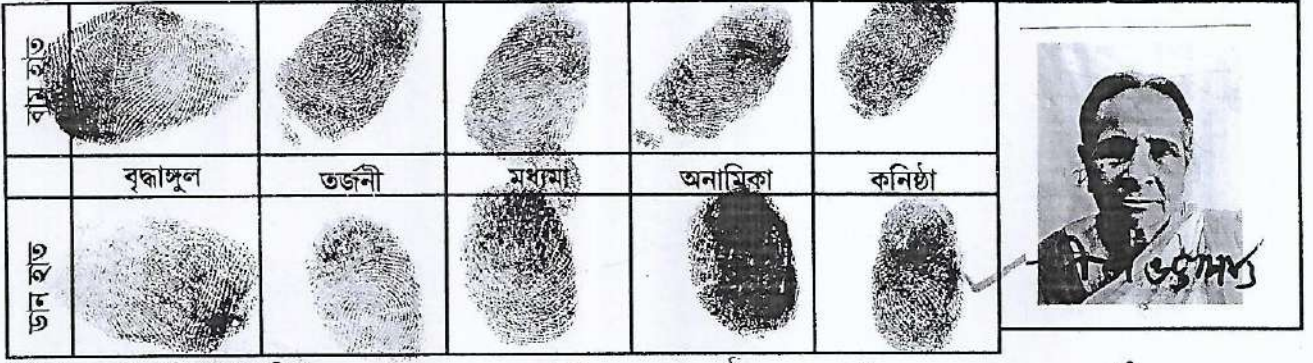 বাম হাত
বৃদ্ধাঙ্গুল তর্জনী মধ্যমা অনামিকা কনিষ্ঠা
ডান হাত
ভট্টাচার্য্য